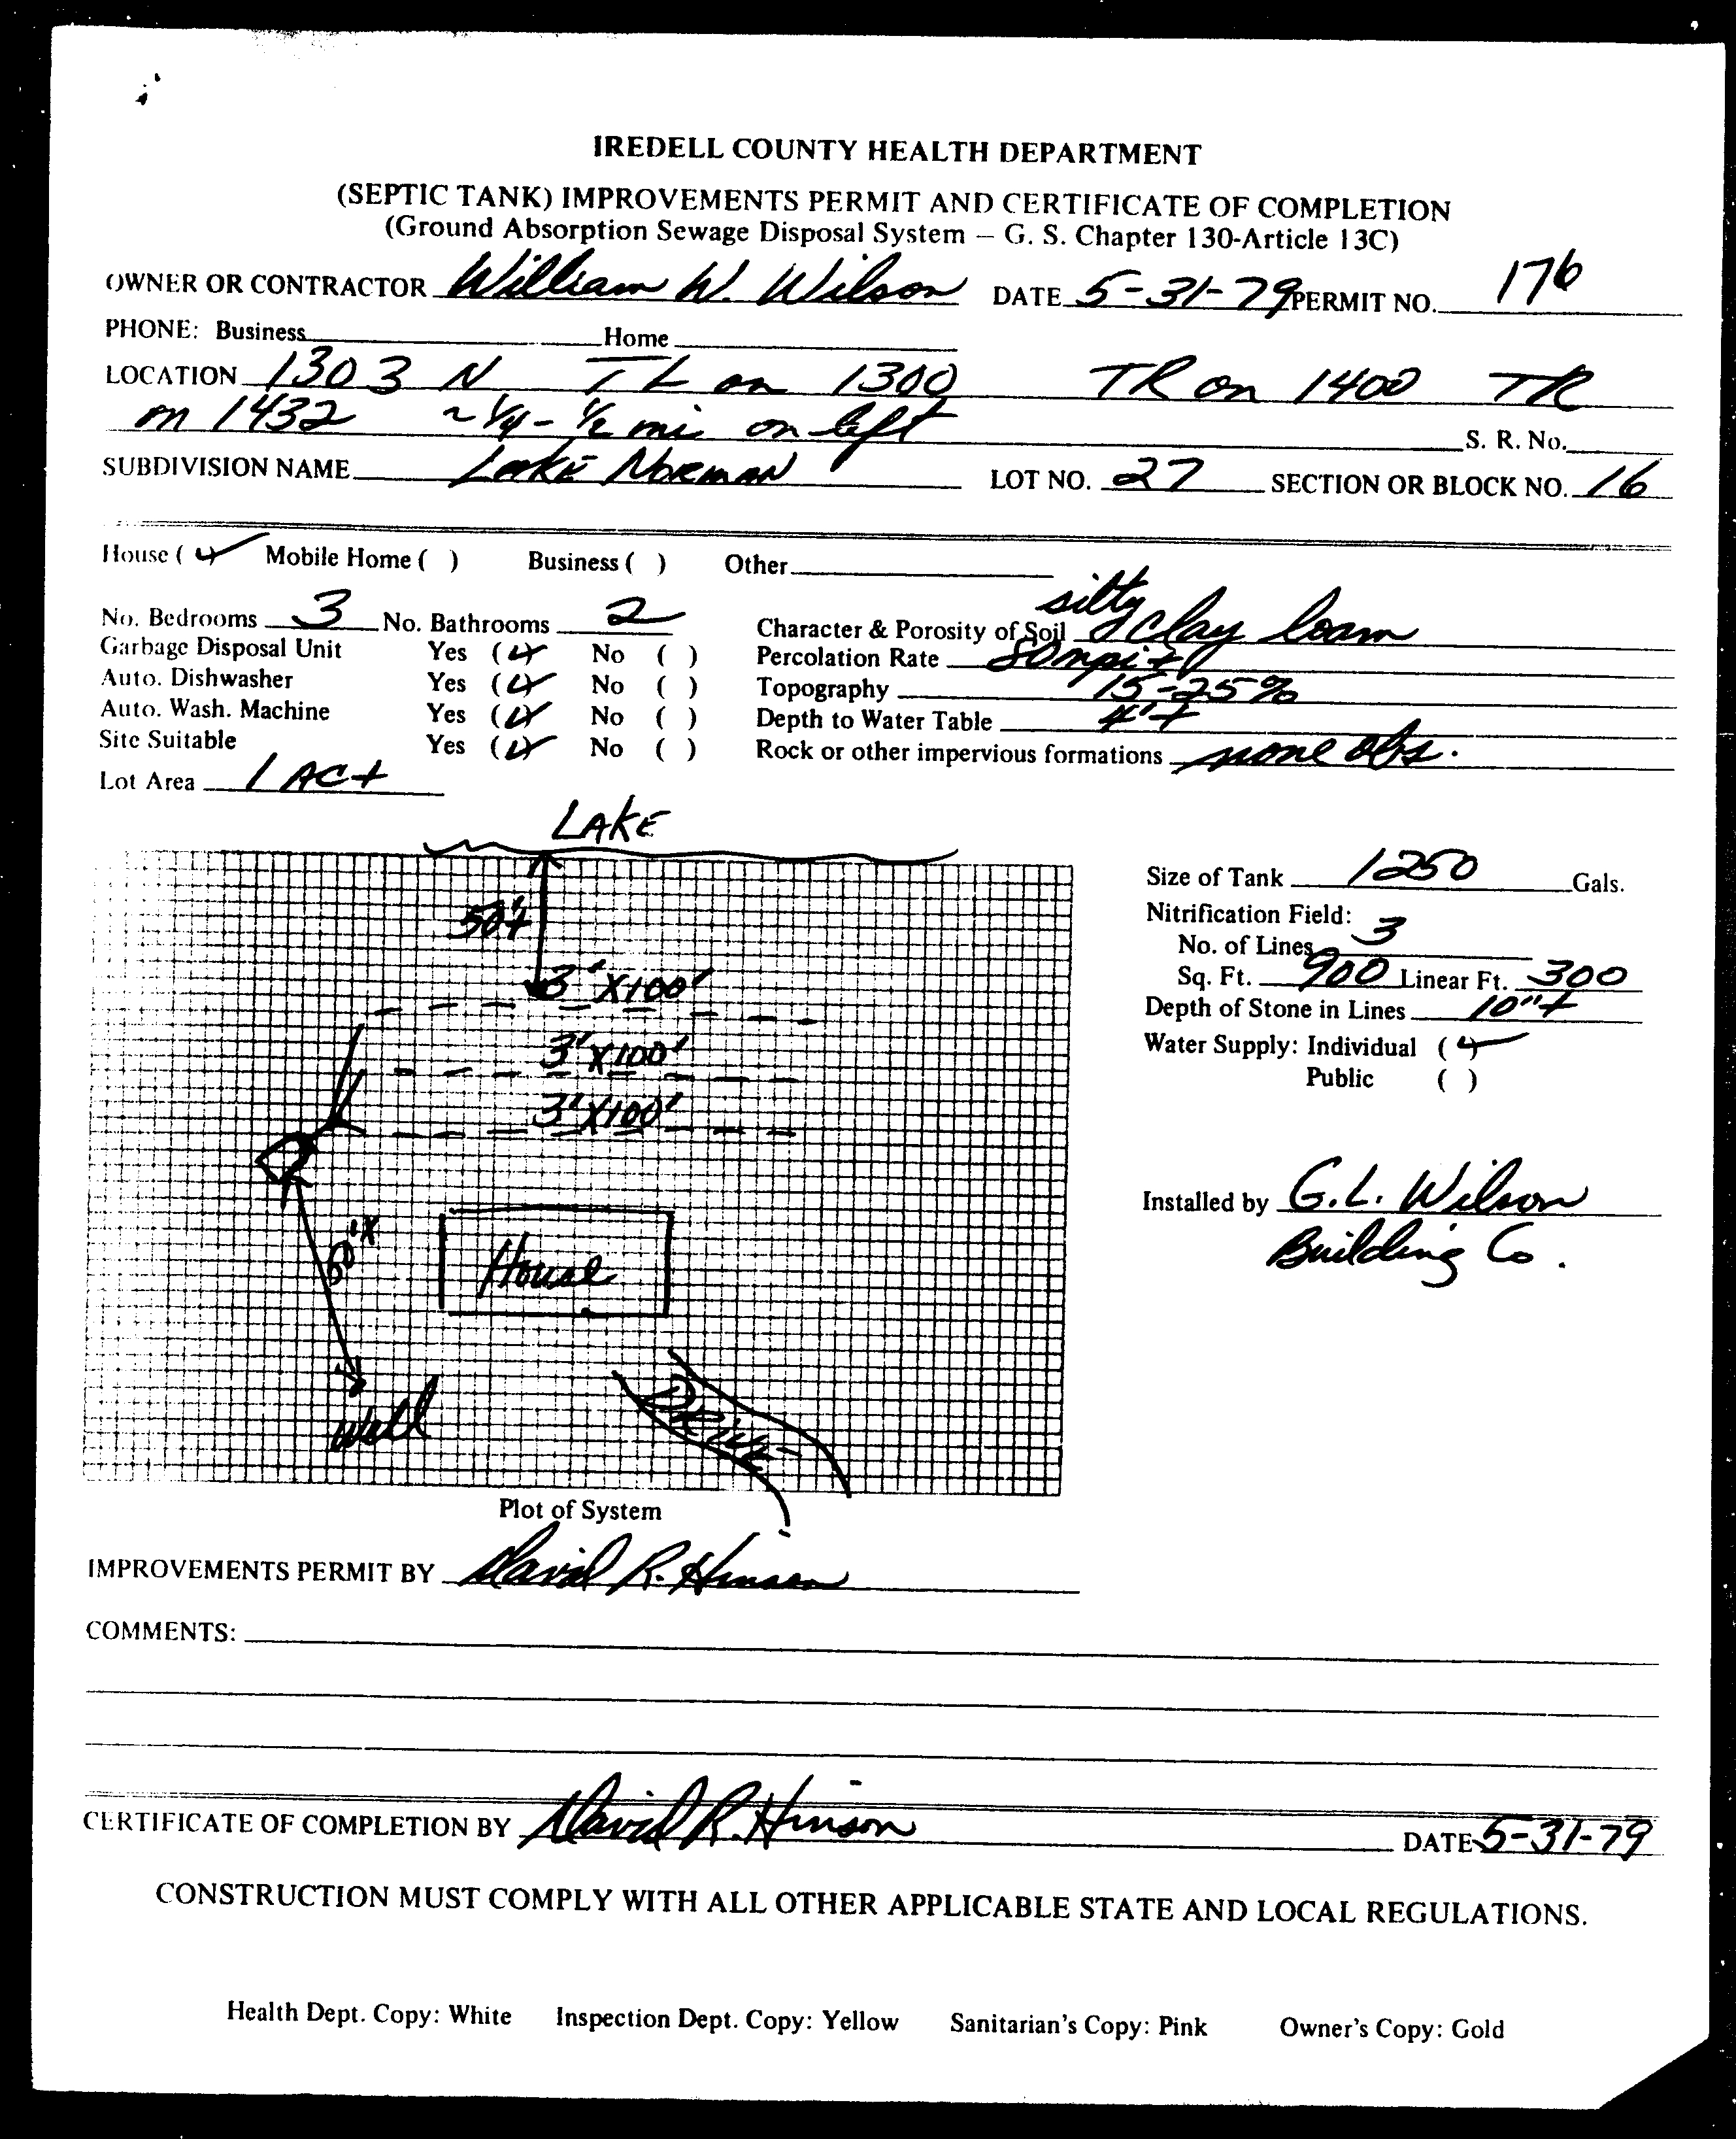 IREDELL COUNTY HEALTH DEPARTMENT
(SEPTIC TANK) IMPROVEMENTS PERMIT AND CERTIFICATE OF COMPLETION
(Ground Absorption Sewage Disposal System – G. S. Chapter 130-Article 13C)
OWNER OR CONTRACTOR William W. Wilson DATE 5-31-79 PERMIT NO. 176
PHONE: Business Home
LOCATION 1303 N TL on 1300 TR on 1400 TR
on 1432 ~ 1/4 - 1/2 mi on left S. R. No.
SUBDIVISION NAME LAKE NORMAN LOT NO. 27 SECTION OR BLOCK NO. 16
House ( ) Mobile Home ( ) Business ( ) Other
No. Bedrooms 3 No. Bathrooms 2 Character & Porosity of Soil silty clay loam
Garbage Disposal Unit Yes ( ) No ( ) Percolation Rate 80 mpi +
Auto. Dishwasher Yes ( ) No ( ) Topography 15-25%
Auto. Wash. Machine Yes ( ) No ( ) Depth to Water Table 4'+
Site Suitable Yes ( ) No ( ) Rock or other impervious formations none obs.
Lot Area 1 AC+
LAKE
Size of Tank 1250 Gals.
50'+
Nitrification Field:
No. of Lines 3
3'X100'
Sq. Ft. 900 Linear Ft. 300
Depth of Stone in Lines 10"+
3'X100'
Water Supply: Individual ( )
Public ( )
3'X100'
Installed by G.L. Wilson
Building Co.
House
Well
Drive
Plot of System
IMPROVEMENTS PERMIT BY David R. Hinson
COMMENTS:
CERTIFICATE OF COMPLETION BY David R. Hinson DATE 5-31-79
CONSTRUCTION MUST COMPLY WITH ALL OTHER APPLICABLE STATE AND LOCAL REGULATIONS.
Health Dept. Copy: White Inspection Dept. Copy: Yellow Sanitarian's Copy: Pink Owner's Copy: Gold